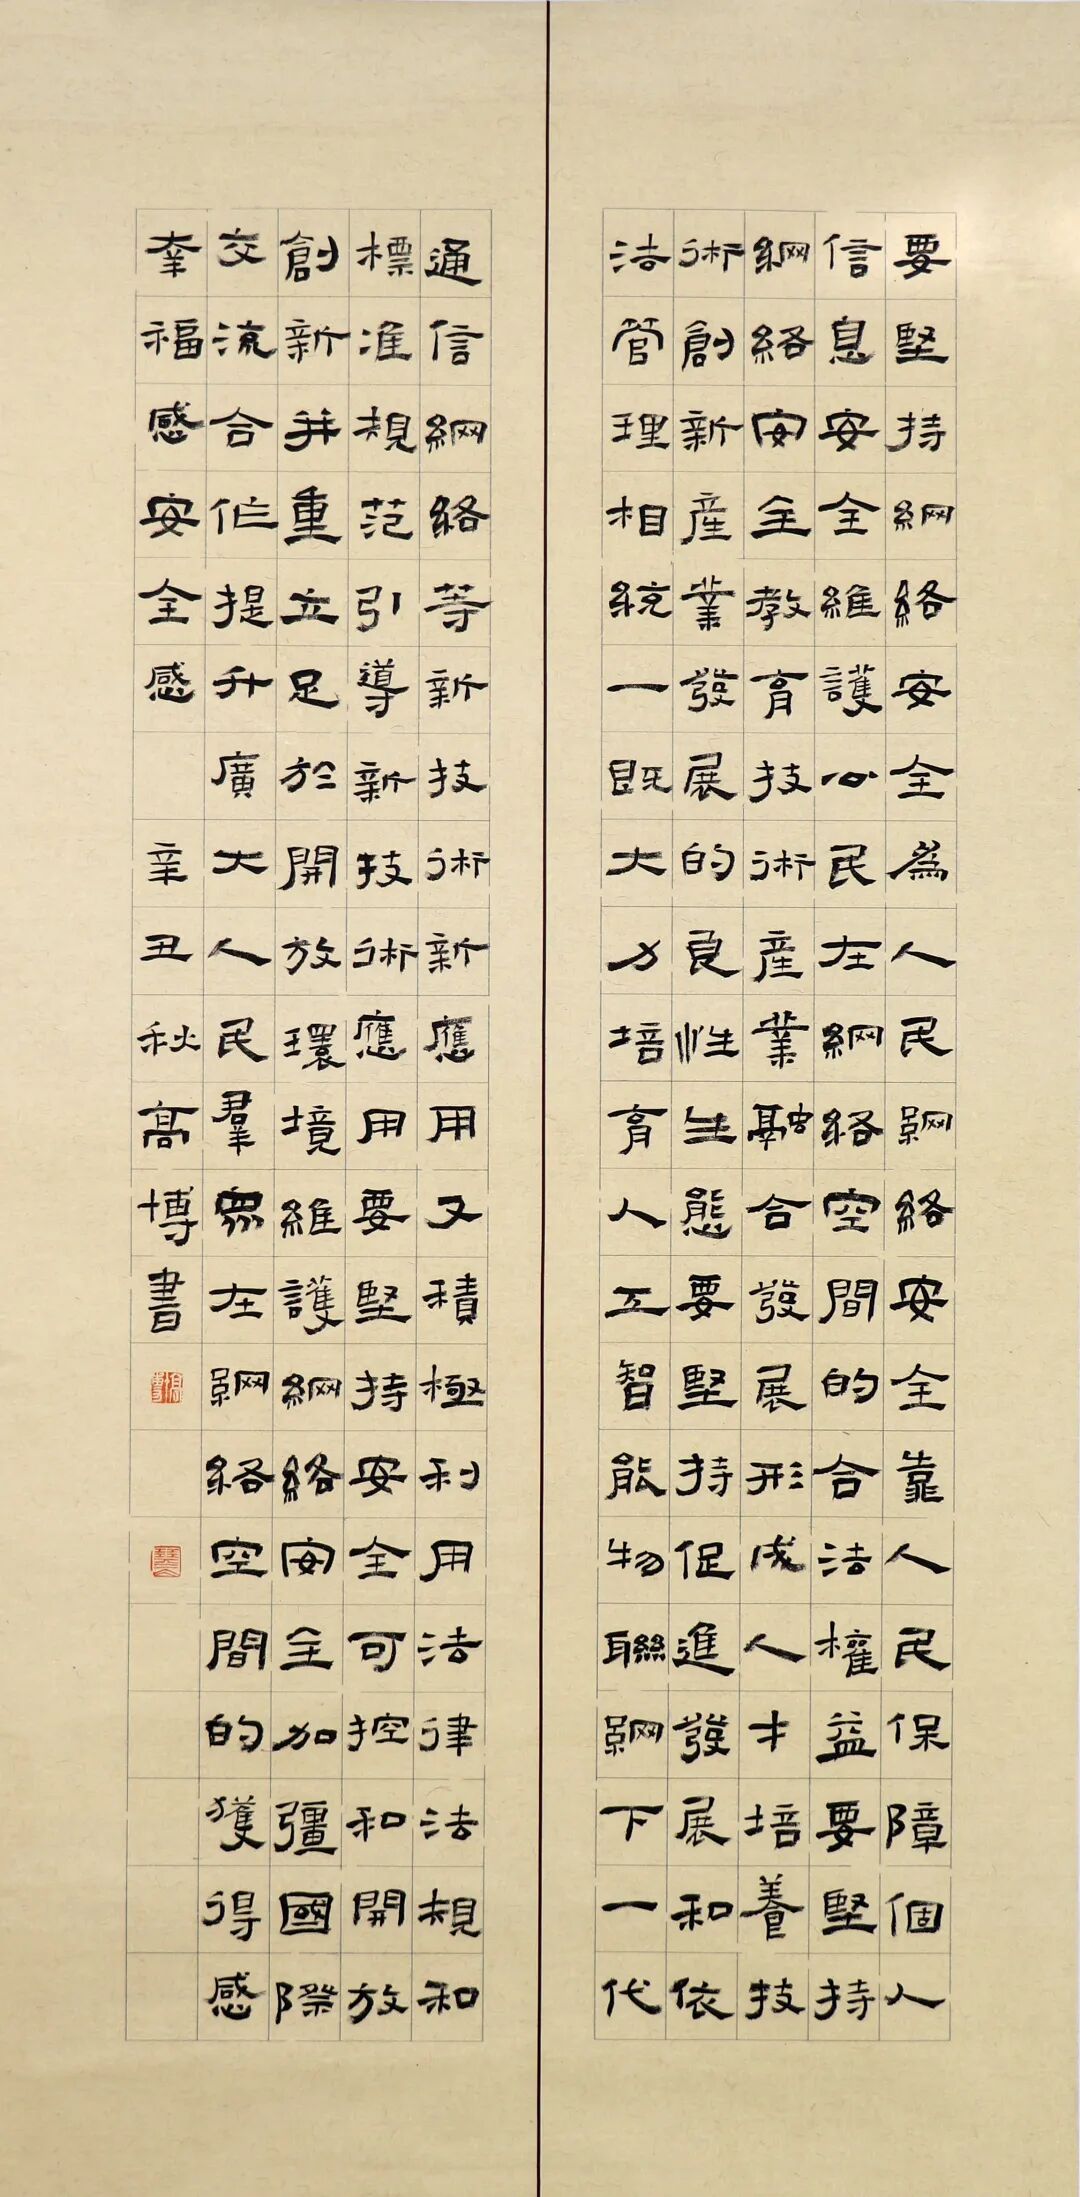 要堅持網絡安全爲人民網絡安全靠人民保障個人
信息安全維護公民在網絡空間的合法權益要堅持
網絡安全教育技術產業融合發展形成人才培養技
術創新產業發展的良性生態要堅持促進發展和依
法管理相統一既大力培育人工智能物聯網下一代
通信網絡等新技術新應用又積極利用法律法規和
標准規范引導新技術應用要堅持安全可控和開放
創新并重立足於開放環境維護網絡安全加彊國際
交流合作提升廣大人民羣眾在網絡空間的獲得感
幸福感安全感 辛丑秋高博書